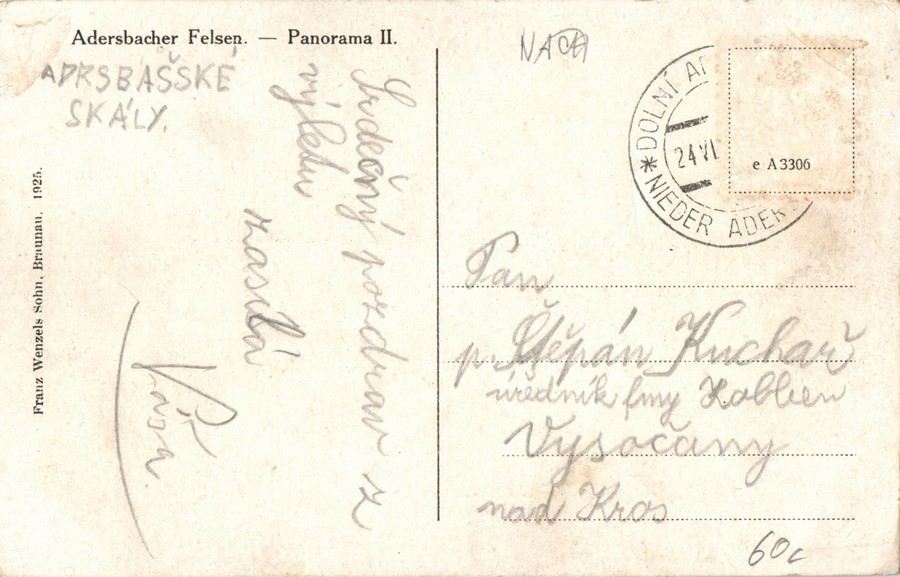 Adersbacher Felsen. — Panorama II.
ADRSBAŠSKÉ
SKÁLY.
Franz Wenzels Sohn, Braunau. 1925.
Srdečný pozdrav z
výletu
zasílá
Váša.
NACH
DOLNÍ AD
24 VI.
NIEDER ADER
e A 3306
Pan
p. Štěpán Kuchař
úředník fmy Kolben
Vysočany
nad Kros
60c